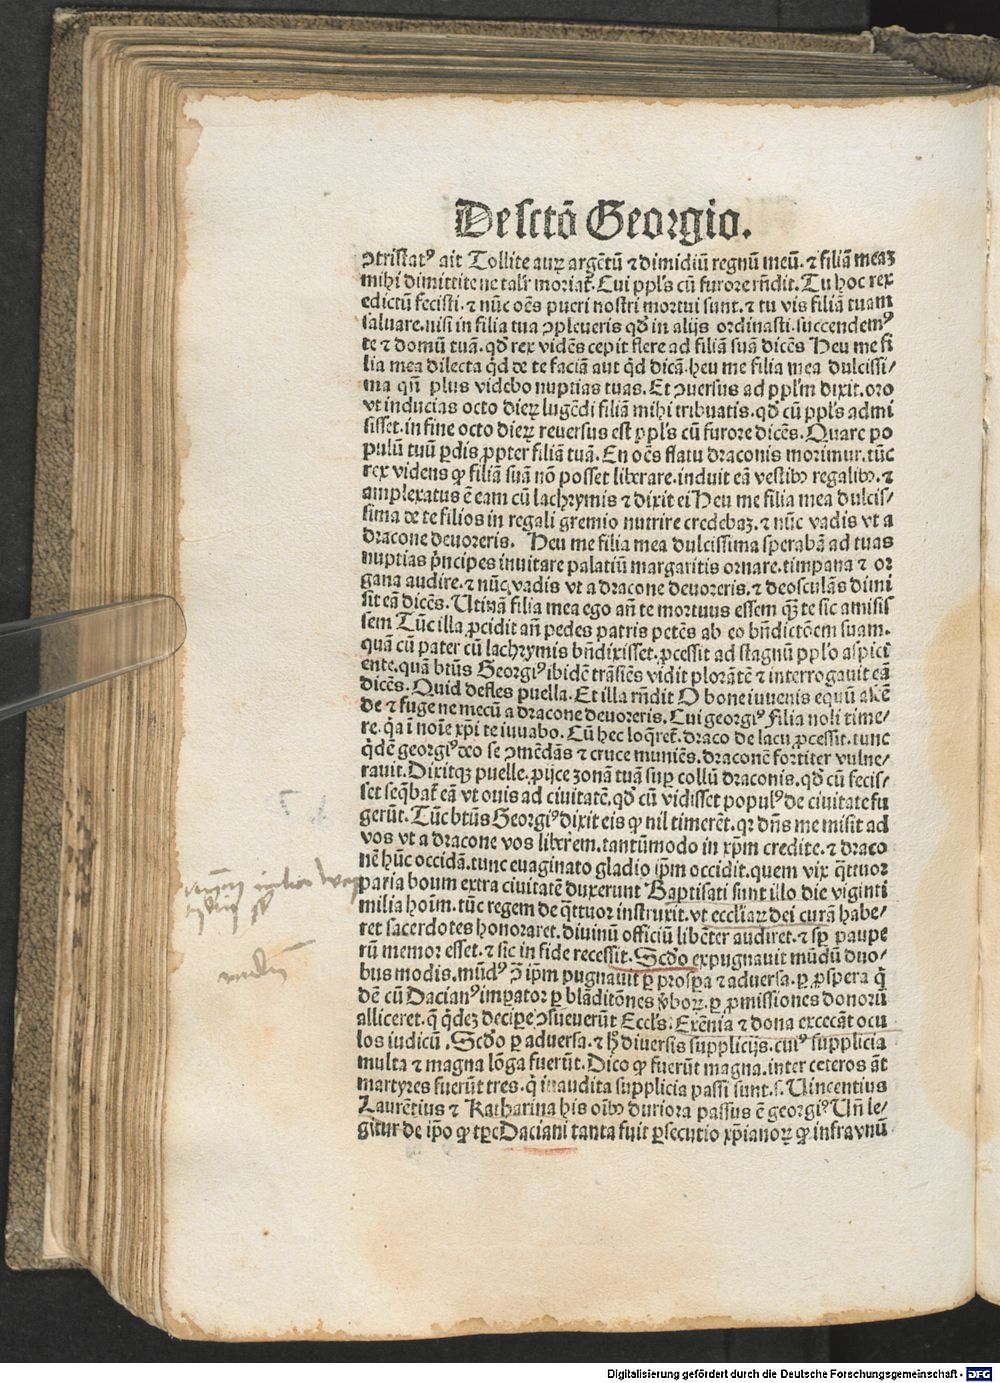 De sctō Georgio.
ↄtristatꝰ ait Tollite auꝝ argētū ⁊ dimidiū regnū meū. ⁊ filiā meaꝫ
mihi dimittite ne talr̄ moriat᷑. Cui ppl's cū furore rn̄dit. Tu hoc rex
edictū fecisti. ⁊ nūc oēs pueri nostri mortui sunt. ⁊ tu vis filiā tuam
saluare. nisi in filia tua ↄpleueris qd̛ in alijs ordinasti. succendemꝰ
te ⁊ domū tuā. qd̛ rex vidēs cepit flere ad filiā suā dicēs Heu me fi
lia mea dilecta qd̛ de te faciā aut qd̛ dicā. heu me filia mea dulcissi/
ma qn̄ plus videbo nuptias tuas. Et ↄuersus ad ppl'm dixit. oro
vt inducias octo dieꝝ lugēdi filiā mihi tribuatis. qd̛ cū ppl's admi
sisset. in fine octo dieꝝ reuersus est ppl's cū furore dicēs. Quare po
pulū tuū ꝑdis ꝓpter filiā tuā. En oēs flatu draconis morimur. tūc
rex videns ꝙ filiā suā nō posset liberare. induit eā vestibꝫ regalibꝫ. ⁊
amplexatus ē eam cū lachrymis ⁊ dixit ei Heu me filia mea dulcis/
sima de te filios in regali gremio nutrire credebaꝫ. ⁊ nūc vadis vt a
dracone deuoreris. Heu me filia mea dulcissima sperabā ad tuas
nuptias p̄ncipes inuitare palatiū margaritis ornare. timpana ⁊ or
gana audire. ⁊ nūc vadis vt a dracone deuoreris. ⁊ deosculās dimi
sit eā dicēs. Utinā filia mea ego an̄ te mortuus essem qꝫ te sic amisis
sem Tūc illa ꝓcidit an̄ pedes patris petēs ab eo bn̄dictōem suam.
quā cū pater cū lachrymis bn̄dixisset. ꝓcessit ad stagnū ppl'o aspici
ente. quā btūs Georgiꝰ ibidē trāsiēs vidit plorātē ⁊ interrogauit eā
dicēs. Quid defles puella. Et illa rn̄dit O bone iuuenis equū ascē
de ⁊ fuge ne mecū a dracone deuoreris. Cui georgiꝰ Filia noli time/
re. qa ī noīe xp̄i te iuuabo. Cū hec loq̄ret᷑. draco de lacu ꝓcessit. tunc
qd̛ē georgiꝰ deo se ↄmēdās ⁊ cruce muniēs. draconē fortiter vulne/
rauit. Dixitqꝫ puelle. ꝓijce zonā tuā suꝑ collū draconis. qd̛ cū fecis/
set seq̄bat᷑ eā vt ouis ad ciuitatē. qd̛ cū vidisset populꝰ de ciuitate fu
gerūt. Tūc btūs Georgiꝰ dixit eis ꝙ nil timerēt. qꝛ dn̄s me misit ad
vos vt a dracone vos librēm. tantūmodo in xp̄m credite. ⁊ draco
nē hūc occidā. tunc euaginato gladio ip̄m occidit. quem vix q̄ttuor
paria boum extra ciuitatē duxerunt Baptisati sunt illo die viginti
milia hoīm. tūc regem de q̄ttuor instruxit. vt eccl'iaꝝ dei curā habe/
ret sacerdotes honoraret. diuinū officiū libēter audiret. ⁊ sꝑ paupe
rū memor esset. ⁊ sic in fide recessit. Scd̛o expugnauit mūdū duo/
bus modis. mūdꝰ ↄ̄ ip̄m pugnauit ꝑ prosꝑa ⁊ aduersa. ꝑ ꝓspera q̄
dē cū Dacianꝰ imꝑator ꝑ blāditōnes v̄boꝝ. ꝑ ꝓmissiones donorū
alliceret. q̄ qd̛eꝫ deciꝑe ↄsueuerūt Eccl's. Exēnia ⁊ dona excecāt ocu
los iudicū. Scd̛o ꝑ aduersa. ⁊ hꝫ diuersis supplicijs. cuiꝰ supplicia
multa ⁊ magna lōga fuerūt. Dico ꝙ fuerūt magna. inter ceteros āt
martyres fuerūt tres. q̄ inaudita supplicia passi sunt. s. Uincentius
Laurētius ⁊ Katharina his oībꝫ duriora passus ē georgiꝰ. Un̄ le/
gitur de ip̄o ꝙ tp̄e Daciani tanta fuit ꝑsecutio xp̄ianoꝝ ꝙ infra vnū
Digitalisierung gefördert durch die Deutsche Forschungsgemeinschaft - DFG